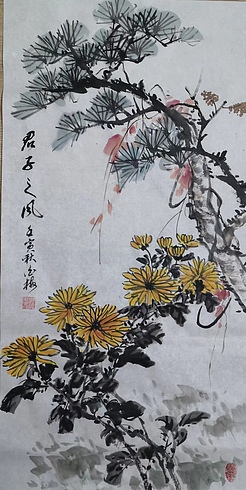 君子之风
壬寅秋